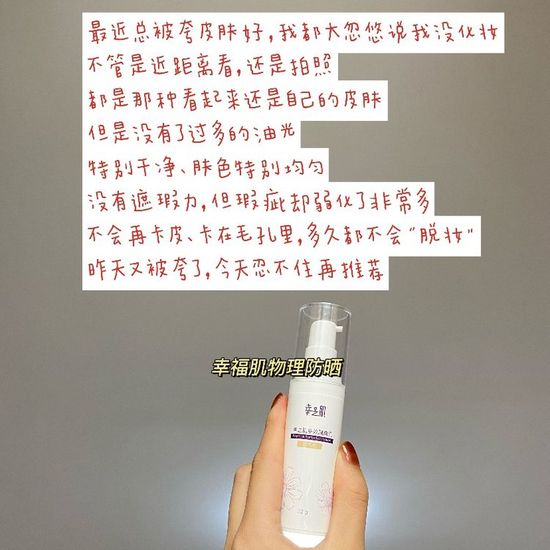 最近总被夸皮肤好,我都大忽悠说我没化妆
不管是近距离看,还是拍照
都是那种看起来还是自己的皮肤
但是没有了过多的油光
特别干净、肤色特别均匀
没有遮瑕力,但瑕疵却弱化了非常多
不会再卡皮、卡在毛孔里,多久都不会“脱妆”
昨天又被夸了,今天忍不住再推荐
幸福肌物理防晒
幸之肌